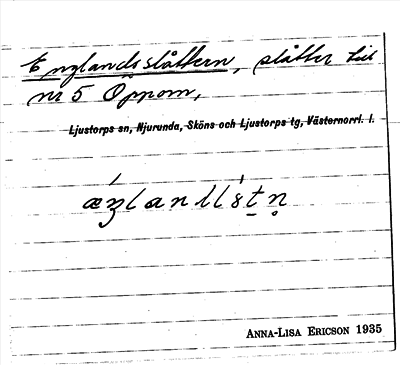 Englandsslåttern, slåtter till
nr 5 Oppom,
Ljustorps sn, Njurunda, Sköns och Ljustorps tg, Västernorrl. l.
ANNA-LISA ERICSON 1935